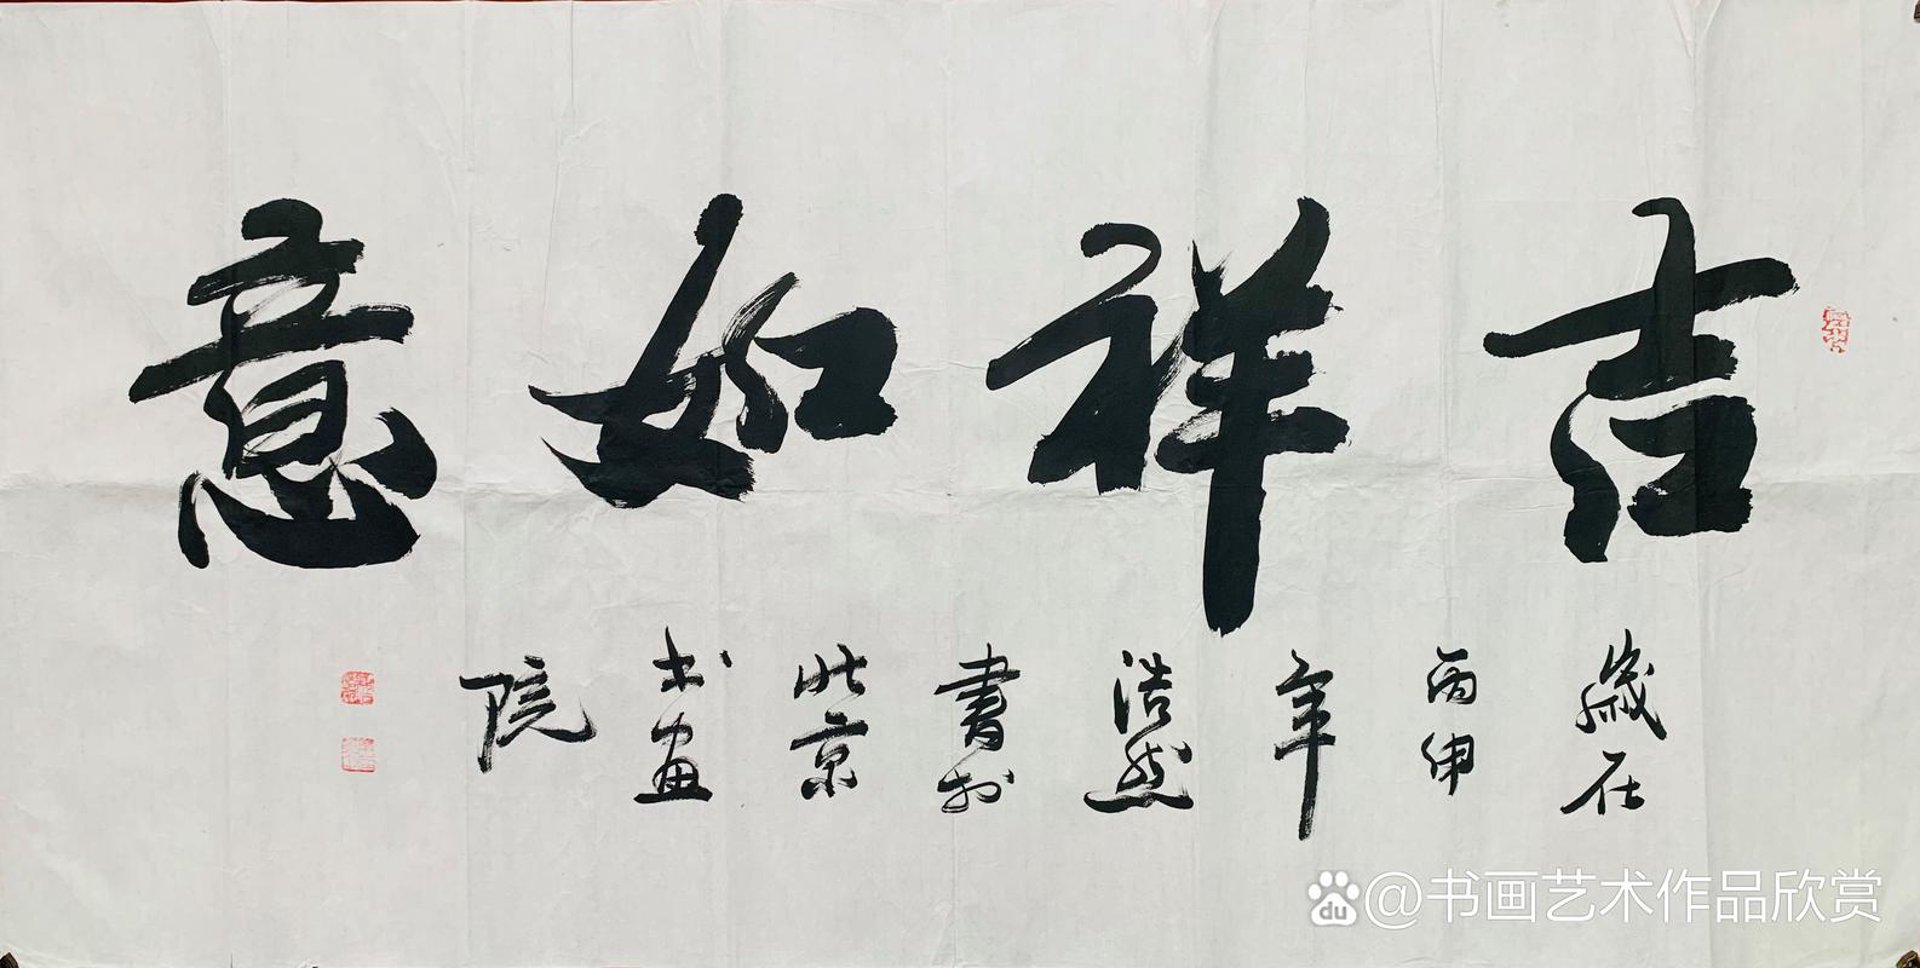 吉祥如意
歲在丙申年浩然書於北京书画院
du @书画艺术作品欣赏